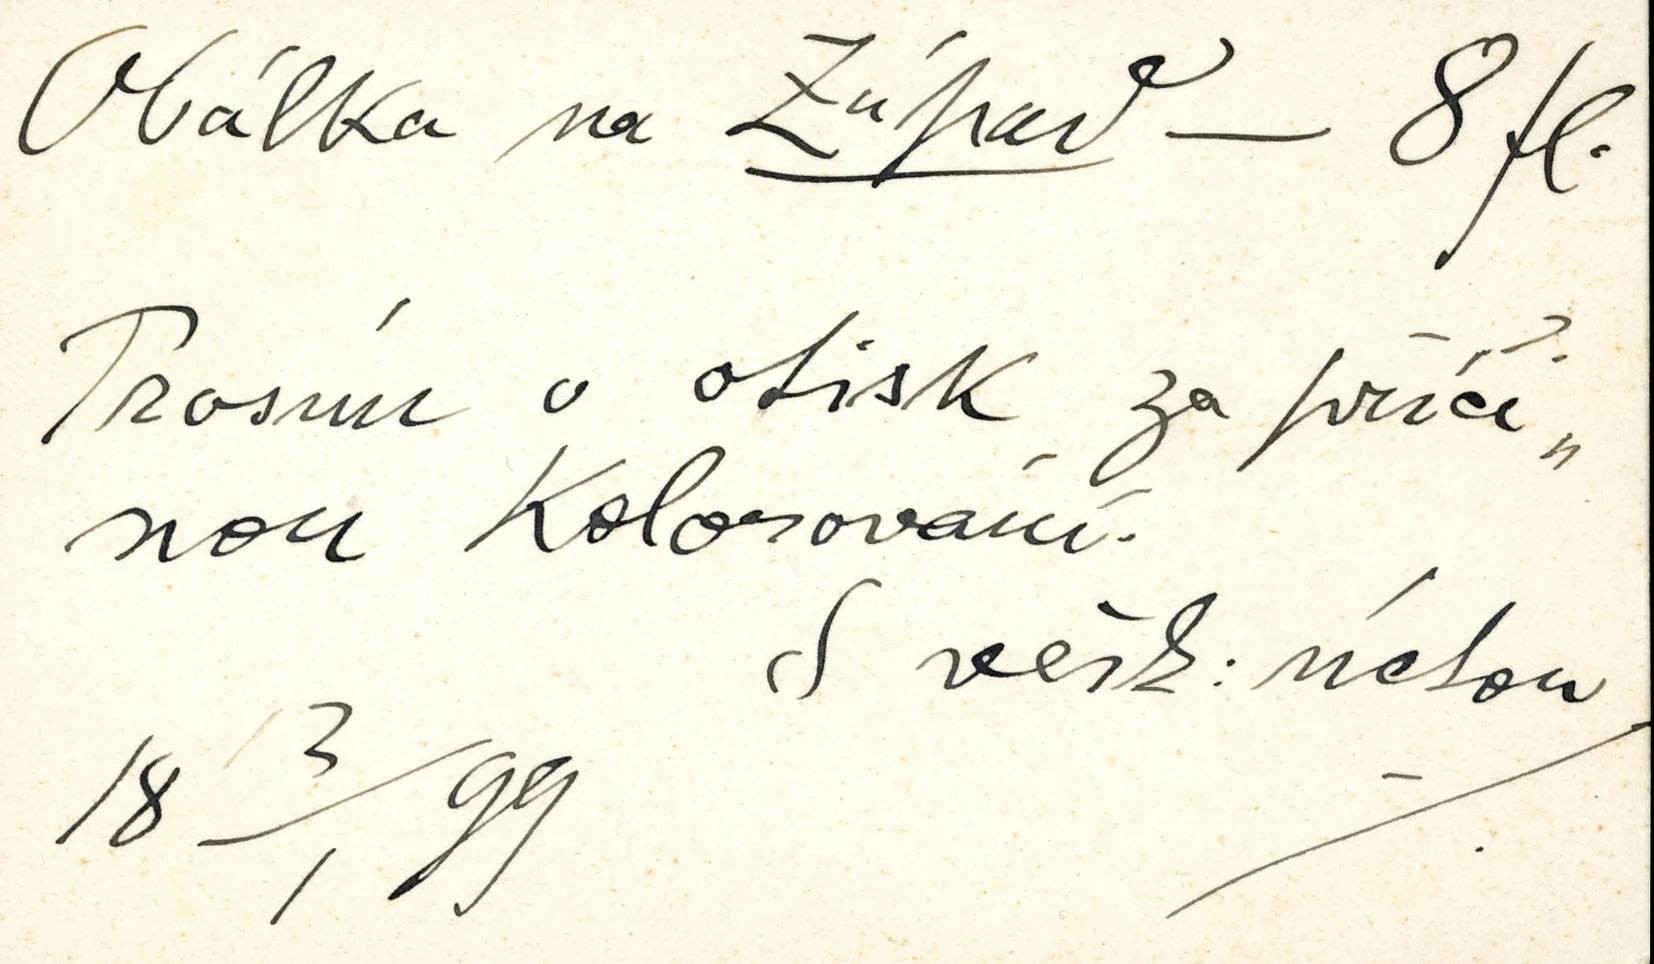 Obálka na Západ — 8 fl.
Prosím o otisk za příči„
nou kolorování.
S vešk: úctou
18 3/1 99